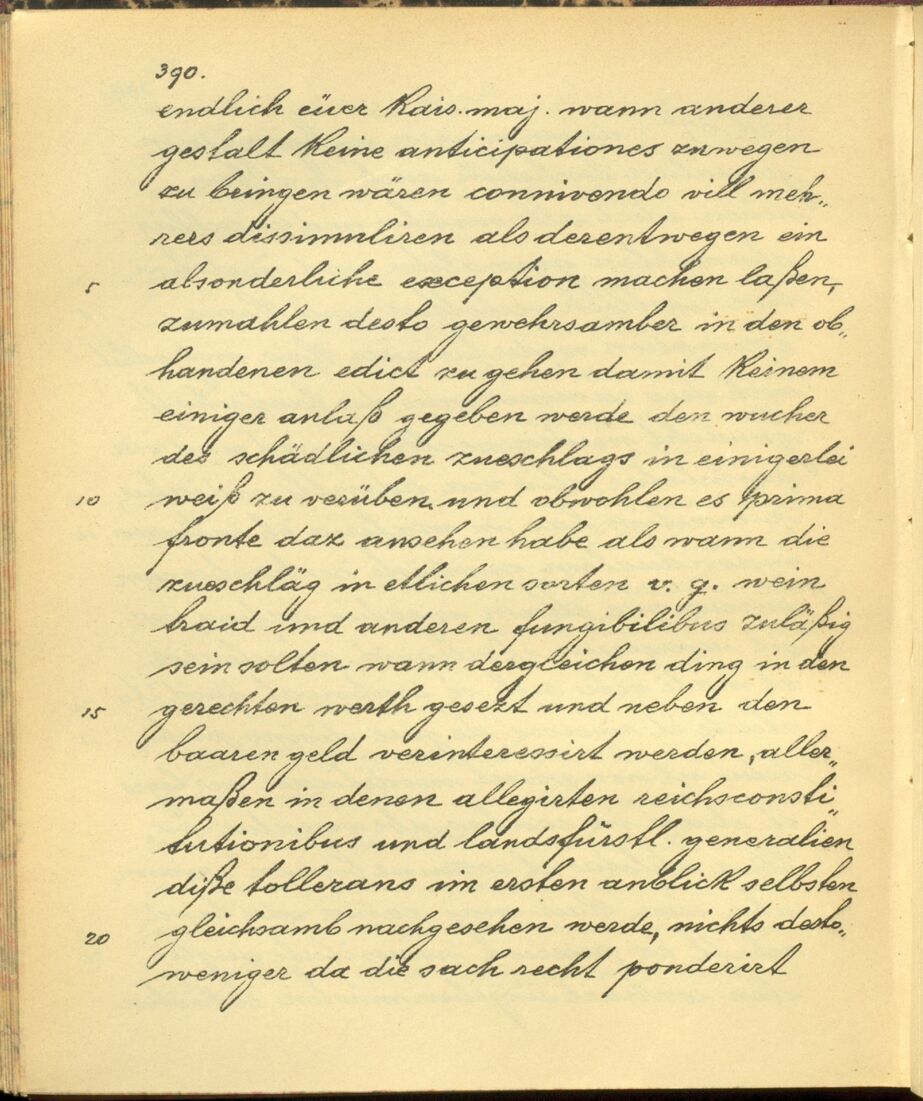 390.
endlich eüer Kais. maj. wann anderer
gestalt Keine anticipationes zuwegen
zu bringen wären connivendo vill meh„
rers dissimuliren als derentwegen ein
5 absonderliche exception machen laßen,
zumahlen desto gewehrsamber in den ob„
handenen edict zu gehen damit Keinem
einiger anlaß gegeben werde den wucher
des schädlichen zueschlags in einigerlei
10 weiß zu verüben und obwohlen es prima
fronte daz ansehen habe als wann die
zueschläg in etlichen sorten v. g. wein
traid und anderen fungibilibus zuläßig
sein solten wann dergleichen ding in den
15 gerechten werth gesezt und neben den
baaren geld verinteressirt werden, aller„
maßen in denen allegirten reichsconsti„
tutionibus und landsfürstl. generalien
diße tollerans im ersten anblick selbsten
20 gleichsamb nachgesehen werde, nichts desto„
weniger da die sach recht ponderirt